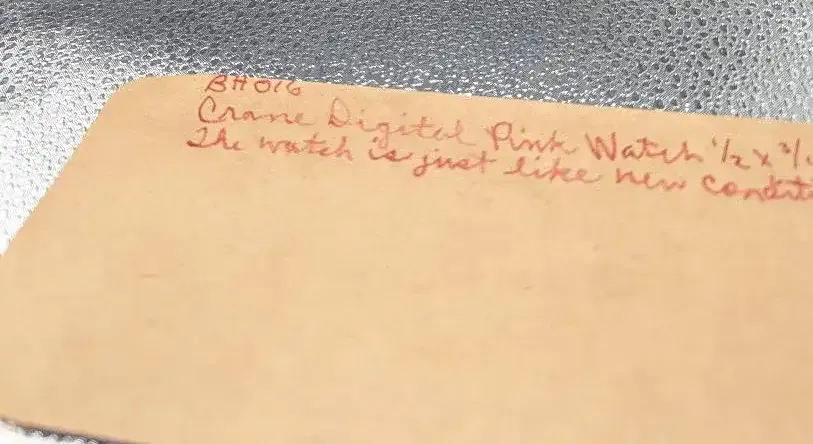 BH016
Crane Digital Pink Watch 1/2 x
The watch is just like new